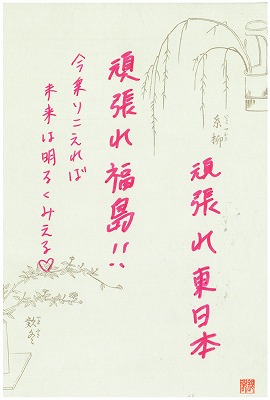 頑張れ東日本
糸柳
頑張れ福島!!
今乗りこえれば
未来は明るくみえる♡